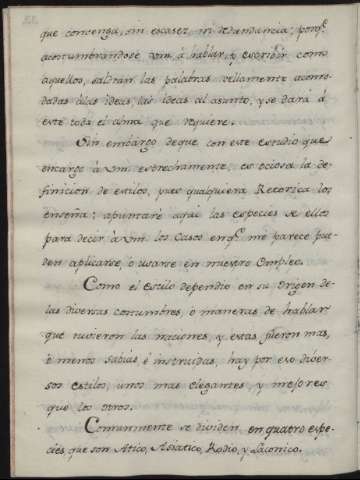 que convenga, sin escasez, ni redundancia; porq.e
acostumbrandose vm. à hablar, y escribir como
aquellos, saldràn las palabras bellamente acomo-
dadas à las ideas, las ideas al asunto, y se darà á
este toda el alma que requiere.
Sin embargo de que con este estudio que
encargo à vm. estrechamente, es ociosa la de-
finicion de estilos, pues qualquiera Retorica los
enseña; apuntarè aqui las especies de ellos
para decir à vm. los casos en q.e me parece pue-
den aplicarse, o usarse en nuestro Empleo.
Como el Estilo dependio en su origen de
las diversas costumbres, ò maneras de hablar
que tuvieron las naciones, y estas fueron mas,
ò menos sabias, è instruidas, hay por eso diver-
sos estilos, unos mas elegantes, y mejores
que los otros.
Comunmente se dividen en quatro espe-
cies, que son Atico, Asiatico, Rodio, y Laconico.